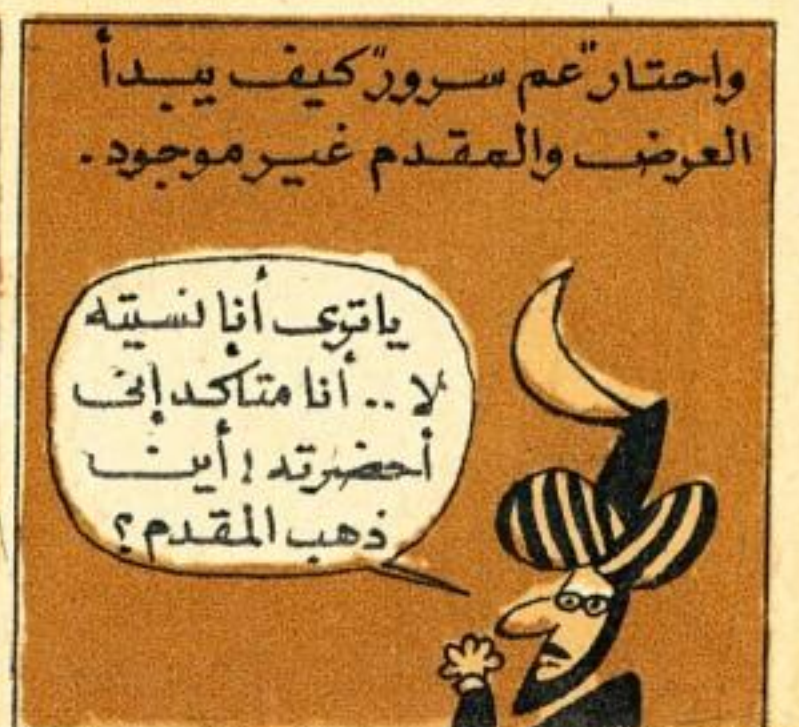 واحتار "عم سرور" كيف يبدأ
العرض والمقدم غير موجود.
ياترى أنا نسيته
لا.. أنا متأكد إنى
أحضرته! أين
ذهب المقدم؟